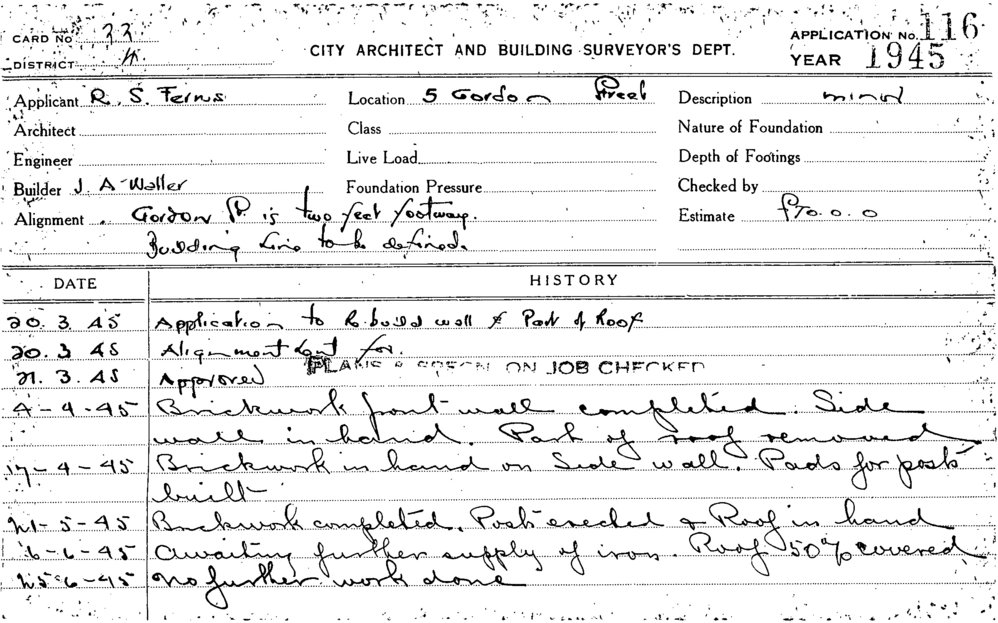 CARD NO 33
DISTRICT
CITY ARCHITECT AND BUILDING SURVEYOR'S DEPT.
APPLICATION No. 116
YEAR 1945
Applicant R. S. Ferns Location 5 Gordon Street Description minor
Architect Class Nature of Foundation
Engineer Live Load Depth of Footings
Builder J. A Waller Foundation Pressure Checked by
Alignment Gordon St. is two feet footway. Estimate
Building Line to be defined.
DATE HISTORY
20. 3. 45 Application to Re-build wall & Part of Roof
20. 3 45 Alignment for.
21. 3. 45 Approved PLANS & SPECN ON JOB CHECKED
4-4-45 Brickwork front wall completed. Side
wall in hand. Part of roof removed
17-4-45 Brickwork in hand on Side wall. Pads for posts
built
21-5-45 Brickwork completed. Posts erected & Roof in hand
6-6-45 Awaiting further supply of iron. Roof 50% covered
25-6-45 No further work done